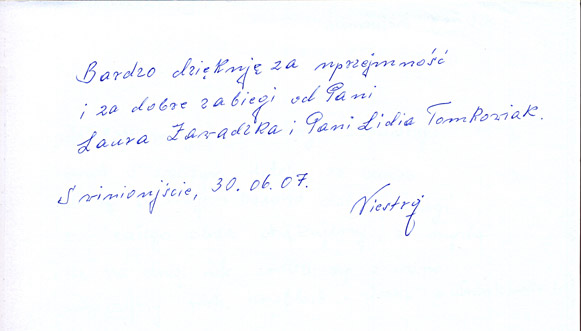 Bardzo dziękuję za uprzejmność
i za dobre zabiegi od Pani
Laura Zawadzka i Pani Lidia Tomkowiak.
Swinionjście, 30. 06. 07.